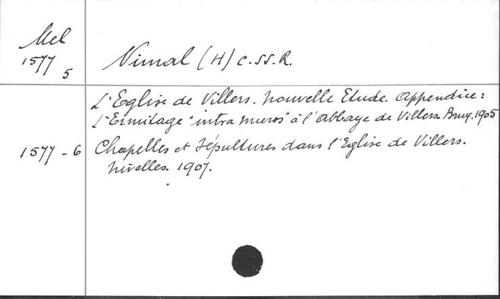 Mel
1577
5
Nimal (H) C.SS.R.
L'Eglise de Villers. Nouvelle Etude. Appendice:
L'Ermitage "intra muros" à l'Abbaye de Villers. Brux. 1905
1577-6 Chapelles et Sépultures dans l'Eglise de Villers.
Nivelles. 1907.